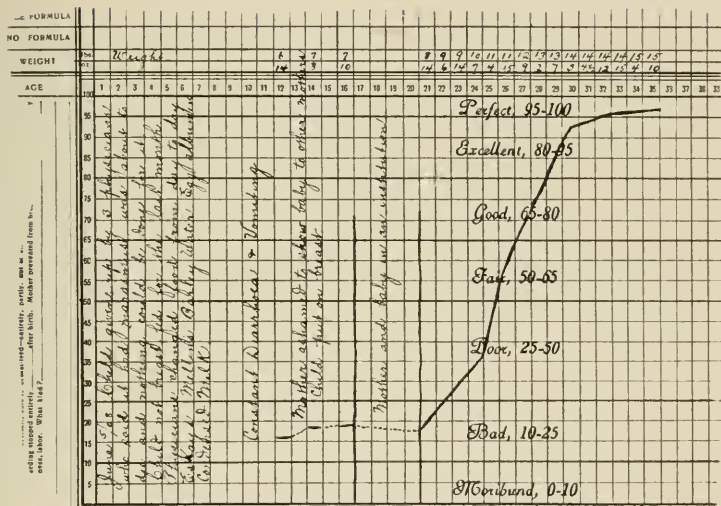 FORMULA
NO FORMULA
WEIGHT
Lbs. Weight 6 7 7 8 9 9 10 11 11 12 13 14 14 14 14 15 15
oz. 14 3 10 14 6 14 7 4 15 9 2 7 3 12 15 4 10
AGE
1 2 3 4 5 6 7 8 9 10 11 12 13 14 15 16 17 18 19 20 21 22 23 24 25 26 27 28 29 30 31 32 33 34 35 36 37 38
100
95
90
85
80
75
70
65
60
55
50
45
40
35
30
25
20
15
10
5
Perfect, 95-100
Excellent, 80-95
Good, 65-80
Fair, 50-65
Poor, 25-50
Bad, 10-25
Moribund, 0-10
June 5/08 Child given up by 3 physicians
who said it had marasmus, was about to
die and nothing could be done for it
Child not breast fed for the last month
Physicians changed food from day to day
Eskays Mellens Barley Water Egg albumin
Condensed Milk
Constant Diarrhoea & Vomiting
Mother ashamed to show baby to other mothers
Child put on breast
Mother and baby in an institution
entirely, partly,
after birth. Mother prevented from
stopped entirely
over, labor. What kind?